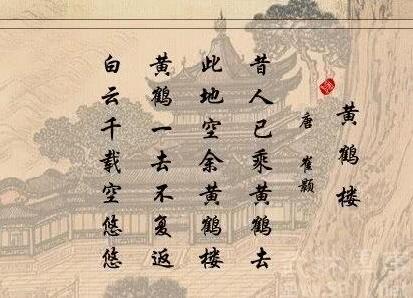 黄鹤楼
唐 崔颢
昔人已乘黄鹤去
此地空余黄鹤楼
黄鹤一去不复返
白云千载空悠悠